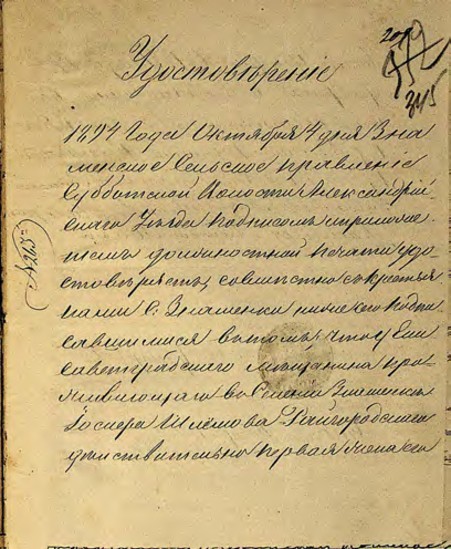 Удостовѣреніе
1894 года Октября 4 дня Зна
менское Сельское правленіе
Субботской Волости Александрій
скаго Уѣзда подписомъ и приложе
ніемъ должностной печати удо
стовѣряетъ, совмѣстно съ крестья
нами с. Знаменки ниже его подпи
савшимися въ томъ, что у Ели
саветградскаго мѣщанина про
живающаго въ селеніи Знаменки
Іосифа Шлемова Райгородскаго
действительно первая жена его
345